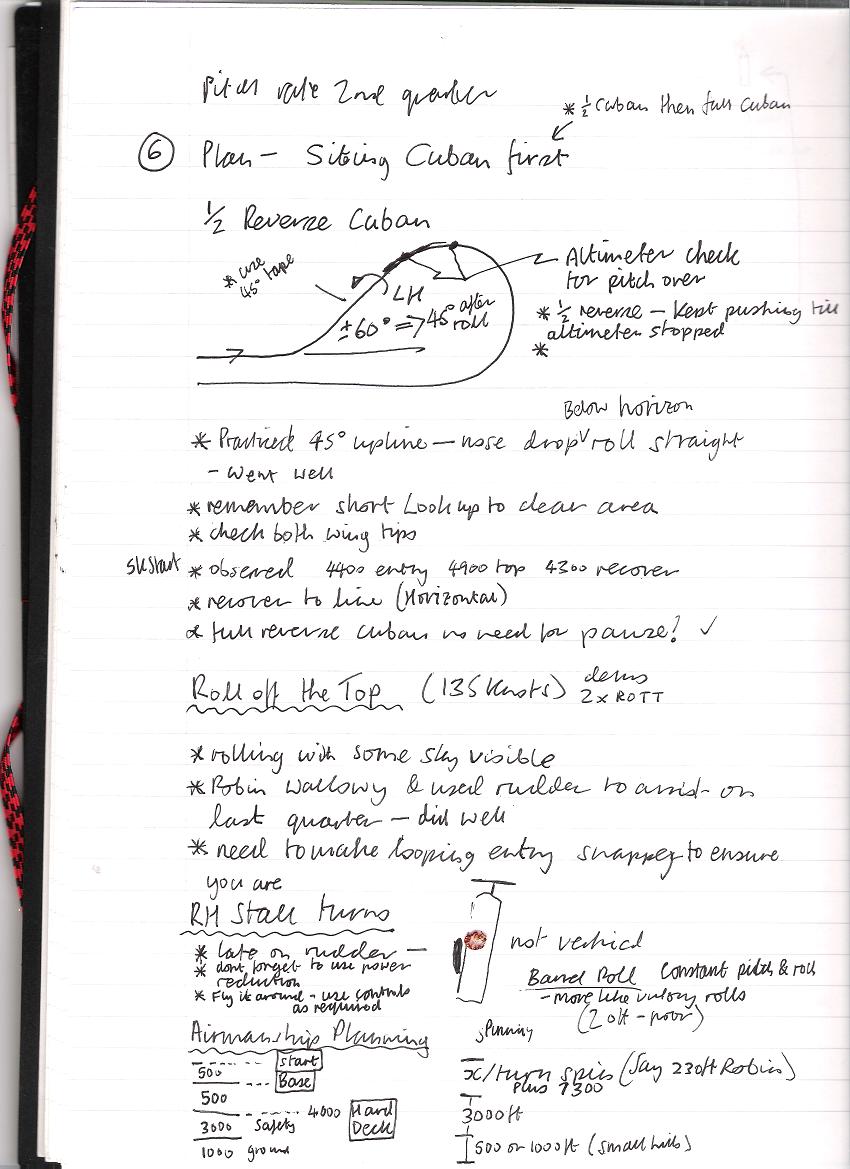 Pitch rate 2nd quarter
* ½ Cuban then full Cuban
⑥ Plan - Siting Cuban first
½ Reverse Cuban
* use 45° tape
LH
± 60° => 45° after roll
Altimeter check
for pitch over
* ½ reverse - Kept pushing till
altimeter stopped
*
Below horizon
* Practiced 45° upline - nose drop ᵛ roll straight
- Went well
* remember short Look up to clear area
* check both wing tips
* observed 4400 entry 4900 top 4300 recover
* recover to line (Horizontal)
* full reverse cuban no need for pause? ✓
Roll off the Top (135 Knots) demo
2 x ROTT
* rolling with some sky visible
* Robin Wallowy & used rudder to assist on
last quarter - did well
* need to make looping entry snappy to ensure
you are
RH Stall turns
* late on rudder -
* dont forget to use power
reduction
* Fly it around - use controls
as required
not vertical
Barrel Roll Constant pitch & roll
- more like victory rolls
(2 off - poor)
Airmanship Planning
start
500
Base
500
4000 Hard Deck
3000 Safety
1000 ground
Spinning
x/turn spins (Say 230ft Robin)
Plus 1300
3000 ft
500 or 1000ft (small hills)